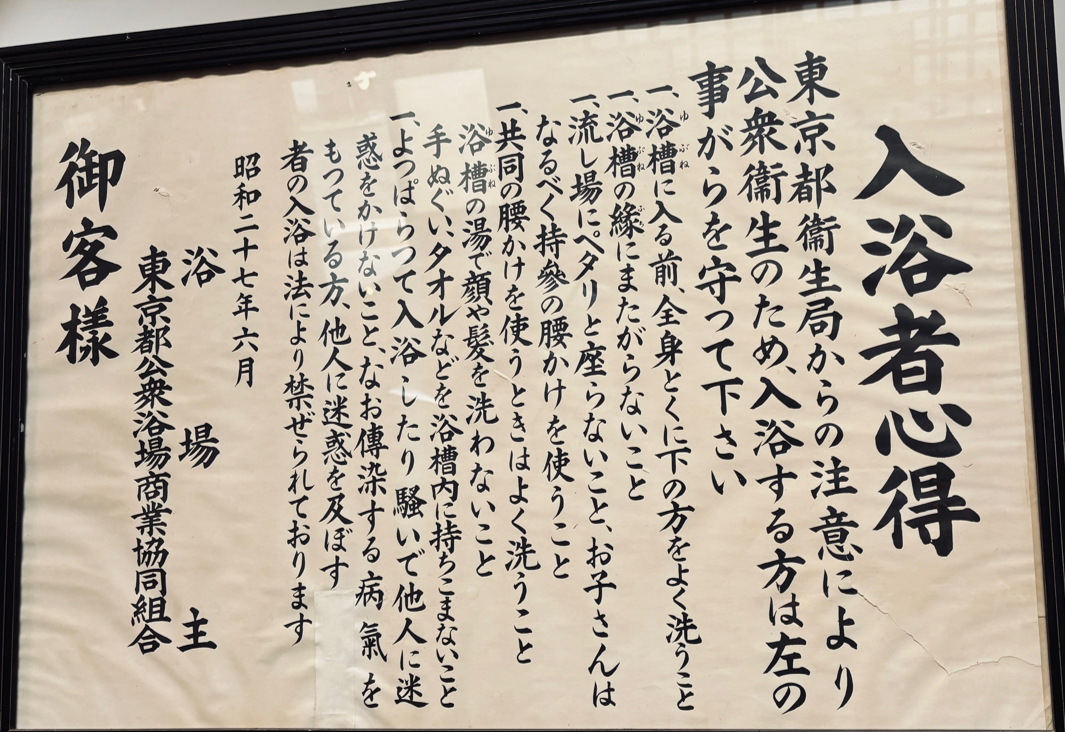 入浴者心得
東京都衞生局からの注意により
公衆衞生のため、入浴する方は左の
事がらを守つて下さい
一、浴槽に入る前、全身とくに下の方をよく洗うこと
一、浴槽の緣にまたがらないこと
一、流し場にペタリと座らないこと、お子さんは
なるべく持參の腰かけを使うこと
一、共同の腰かけを使うときはよく洗うこと
浴槽の湯で顔や髪を洗わないこと
手ぬぐい、タオルなどを浴槽内に持ちこまないこと
一、よつぱらつて入浴したり騒いで他人に迷
惑をかけないことなお傳染する病氣を
もつている方、他人に迷惑を及ぼす
者の入浴は法により禁ぜられております
昭和二十七年六月
浴場主
東京都公衆浴場商業協同組合
御客様